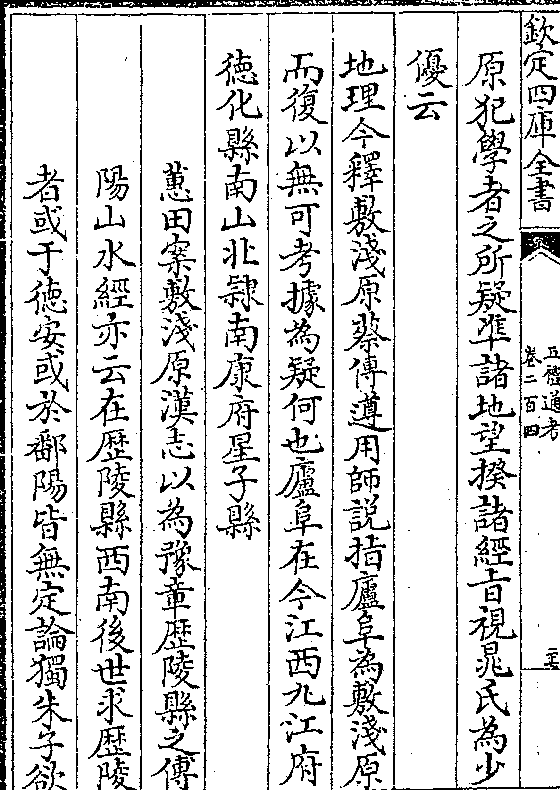 欽定四庫全書
五禮通考
卷二百四
原犯學者之所疑準諸地望揆諸經㫖視晁氏為少
優云
地理今釋敷淺原蔡傳遵用師説指廬阜為敷淺原
而復以無可考據為疑何也廬阜在今江西九江府
德化縣南山北隷南康府星子縣
蕙田案敷淺原漢志以為豫章歴陵縣之傅
陽山水經亦云在歴陵縣西南後世求歴陵
者或于德安或於鄱陽皆無定論獨朱子欲